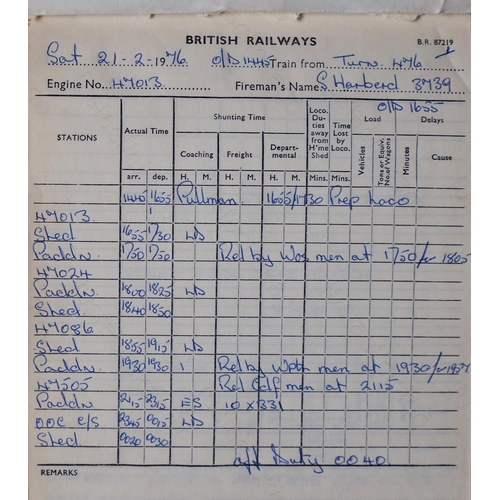 BRITISH RAILWAYS B.R. 87219
Sat 21-2-1976 O/D 1445 Train from Turn 476
Engine No. 47013 Fireman's Name S Harberd 3739
O/D 1655
STATIONS Actual Time Shunting Time Loco. Duties away from H'me Shed Time Lost by Loco. Load Delays
Coaching Freight Departmental Vehicles Tons or Equiv. No. of Wagons Minutes Cause
arr. dep. H. M. H. M. H. M. Mins. Mins.
1445 1655 Pullman 1655/1730 Prep Loco
47013
Shed 1655 1730 LD
Paddn 1750 1750 Rel by Wos men at 1750 for 1805
47024
Paddn 1800 1825 LD
Shed 1840 1850
47086
Shed 1855 1915 LD
Paddn 1930 1930 1 Rel by Wpth men at 1930 for
47505 Rel Cdf men at 2115
Paddn 2115 2315 ES 10 x 331
OOC C/S 2345 0015 LD
Shed 0020 0030
off Duty 0040.
REMARKS